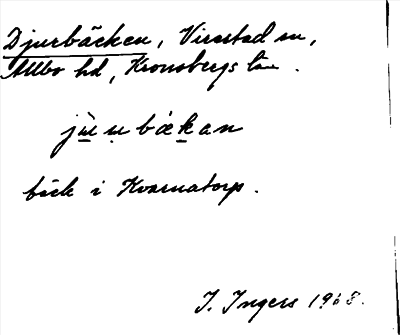 Djurbäcken, Virestad sn,
Allbo hd, Kronobergs län.
jùu̠ṇbäk̠an
bäck i Kvarnatorp.
I. Ingers 1968.